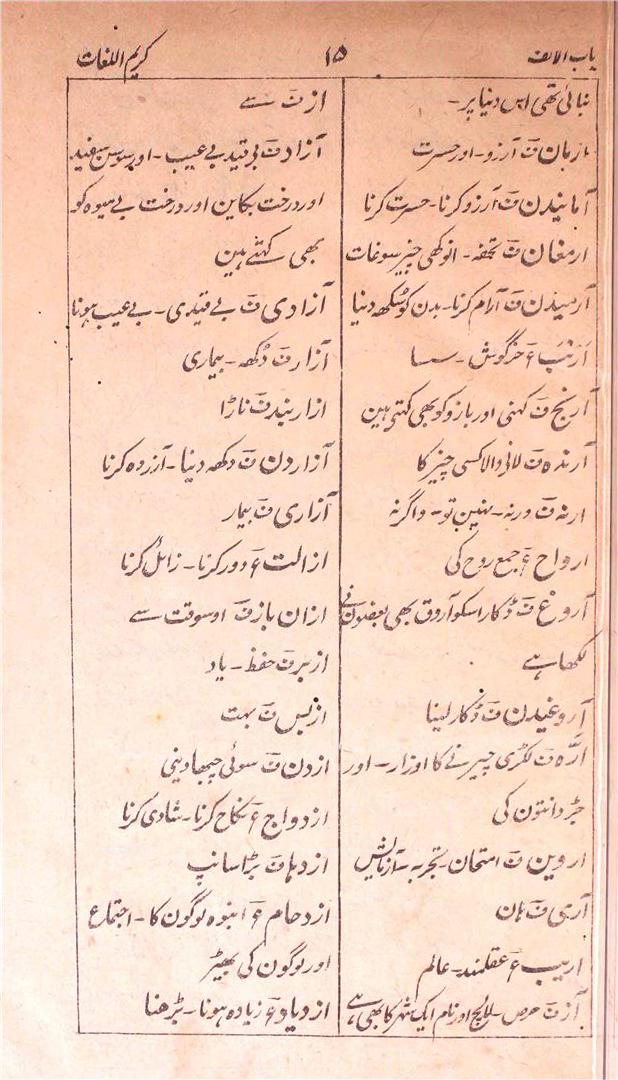 باب الالف
۱۵
کریم اللغات
بنائی تھی اس دنیا پر۔
ارمان ف آرزو۔ اور حسرت
آمانیدن ف آرزو کرنا۔ حسرت کرنا
ارمغان ف تحفہ۔ انوکھی چیز سوغات
آرمیدن ف آرام کرنا۔ بدن کو سُکھ دینا
اَرنَب ع خرگوش۔ سسا
آرنج ف کہنی اور بازو کو بھی کہتی ہین
آرندہ ف لانی والا کسی چیز کا
ارنہ ف ورنہ۔ نہین تو۔ واگرنہ
ارواح ع جمع روح کی
آروغ ف ڈکار اسکو آروق بھی بعضون نے
لکھا ہے
آروغیدن ف ڈکار لینا
ارّہ ف لکڑی چیرنے کا اوزار۔ اور
جڑ دانتون کی
اروین ف امتحان۔ تجربہ۔ آزمایش
آری ف ہان
اریب ع عقلمند۔ عالم
آز ف حرص۔ لالچ اور نام ایک شہر کا بھی ہے
از ف سے
آزاد ف بی قید بے عیب۔ اور سوسن سفید
اور درخت بکاین اور درخت بے میوہ کو
بھی کہتے ہین
آزادی ف بے قیدی۔ بے عیب ہونا
آزار ف دُکھہ۔ بیماری
ازاربند ف ناڑا
آزاردن ف دکھہ دینا۔ آزردہ کرنا
آزاری ف بیمار
ازالت ع دور کرنا۔ زائل کرنا
ازان باز ف اوسوقت سے
ازبر ف حفظ۔ یاد
ازبس ف بہت
ازدن ف سوئی چبھا دینی
ازدواج ع نکاح کرنا۔ شادی کرنا
ازدہا ف بڑا سانپ
ازدحام ع انبوہ لوگون کا۔ اجتماع
اور لوگون کی بھیڑ
ازدیاد ع زیادہ ہونا۔ بڑھنا